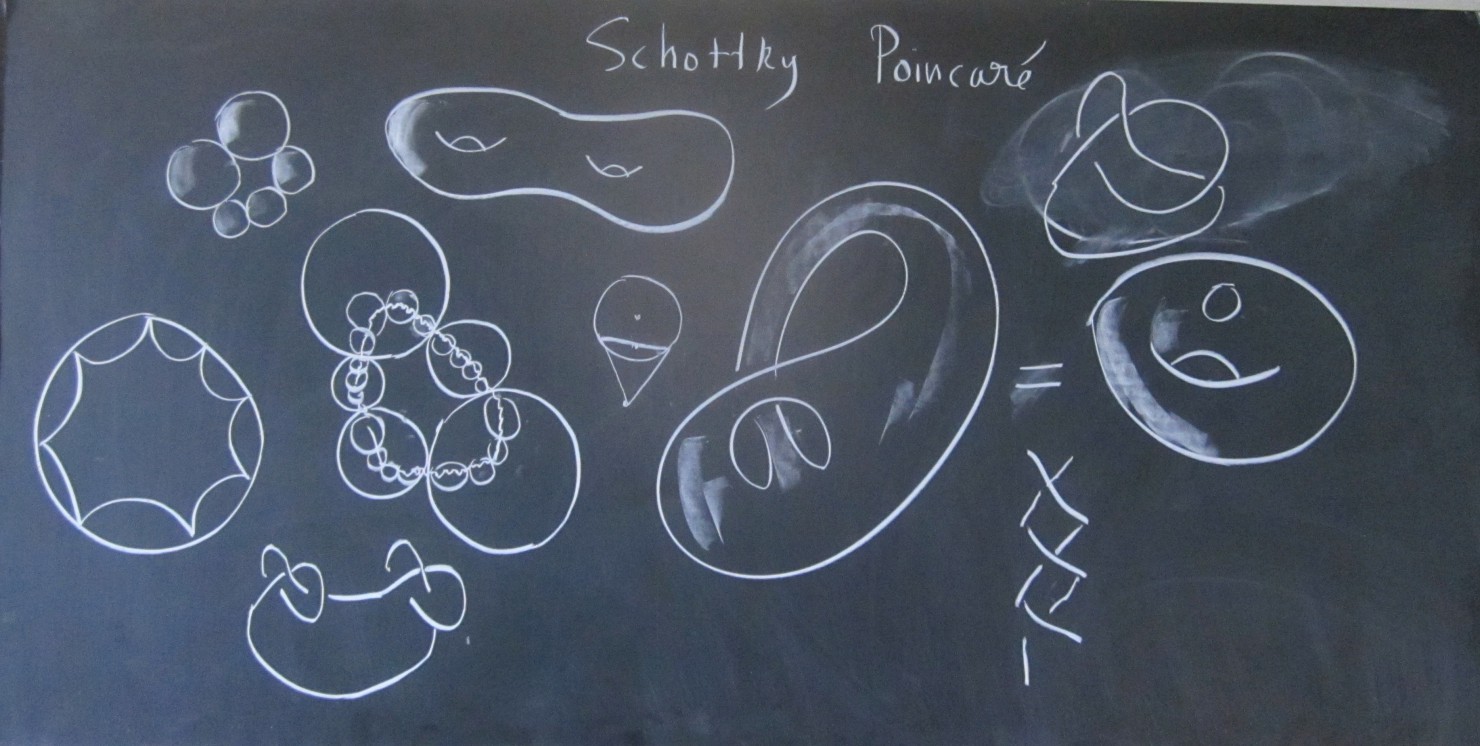 Schottky Poincaré